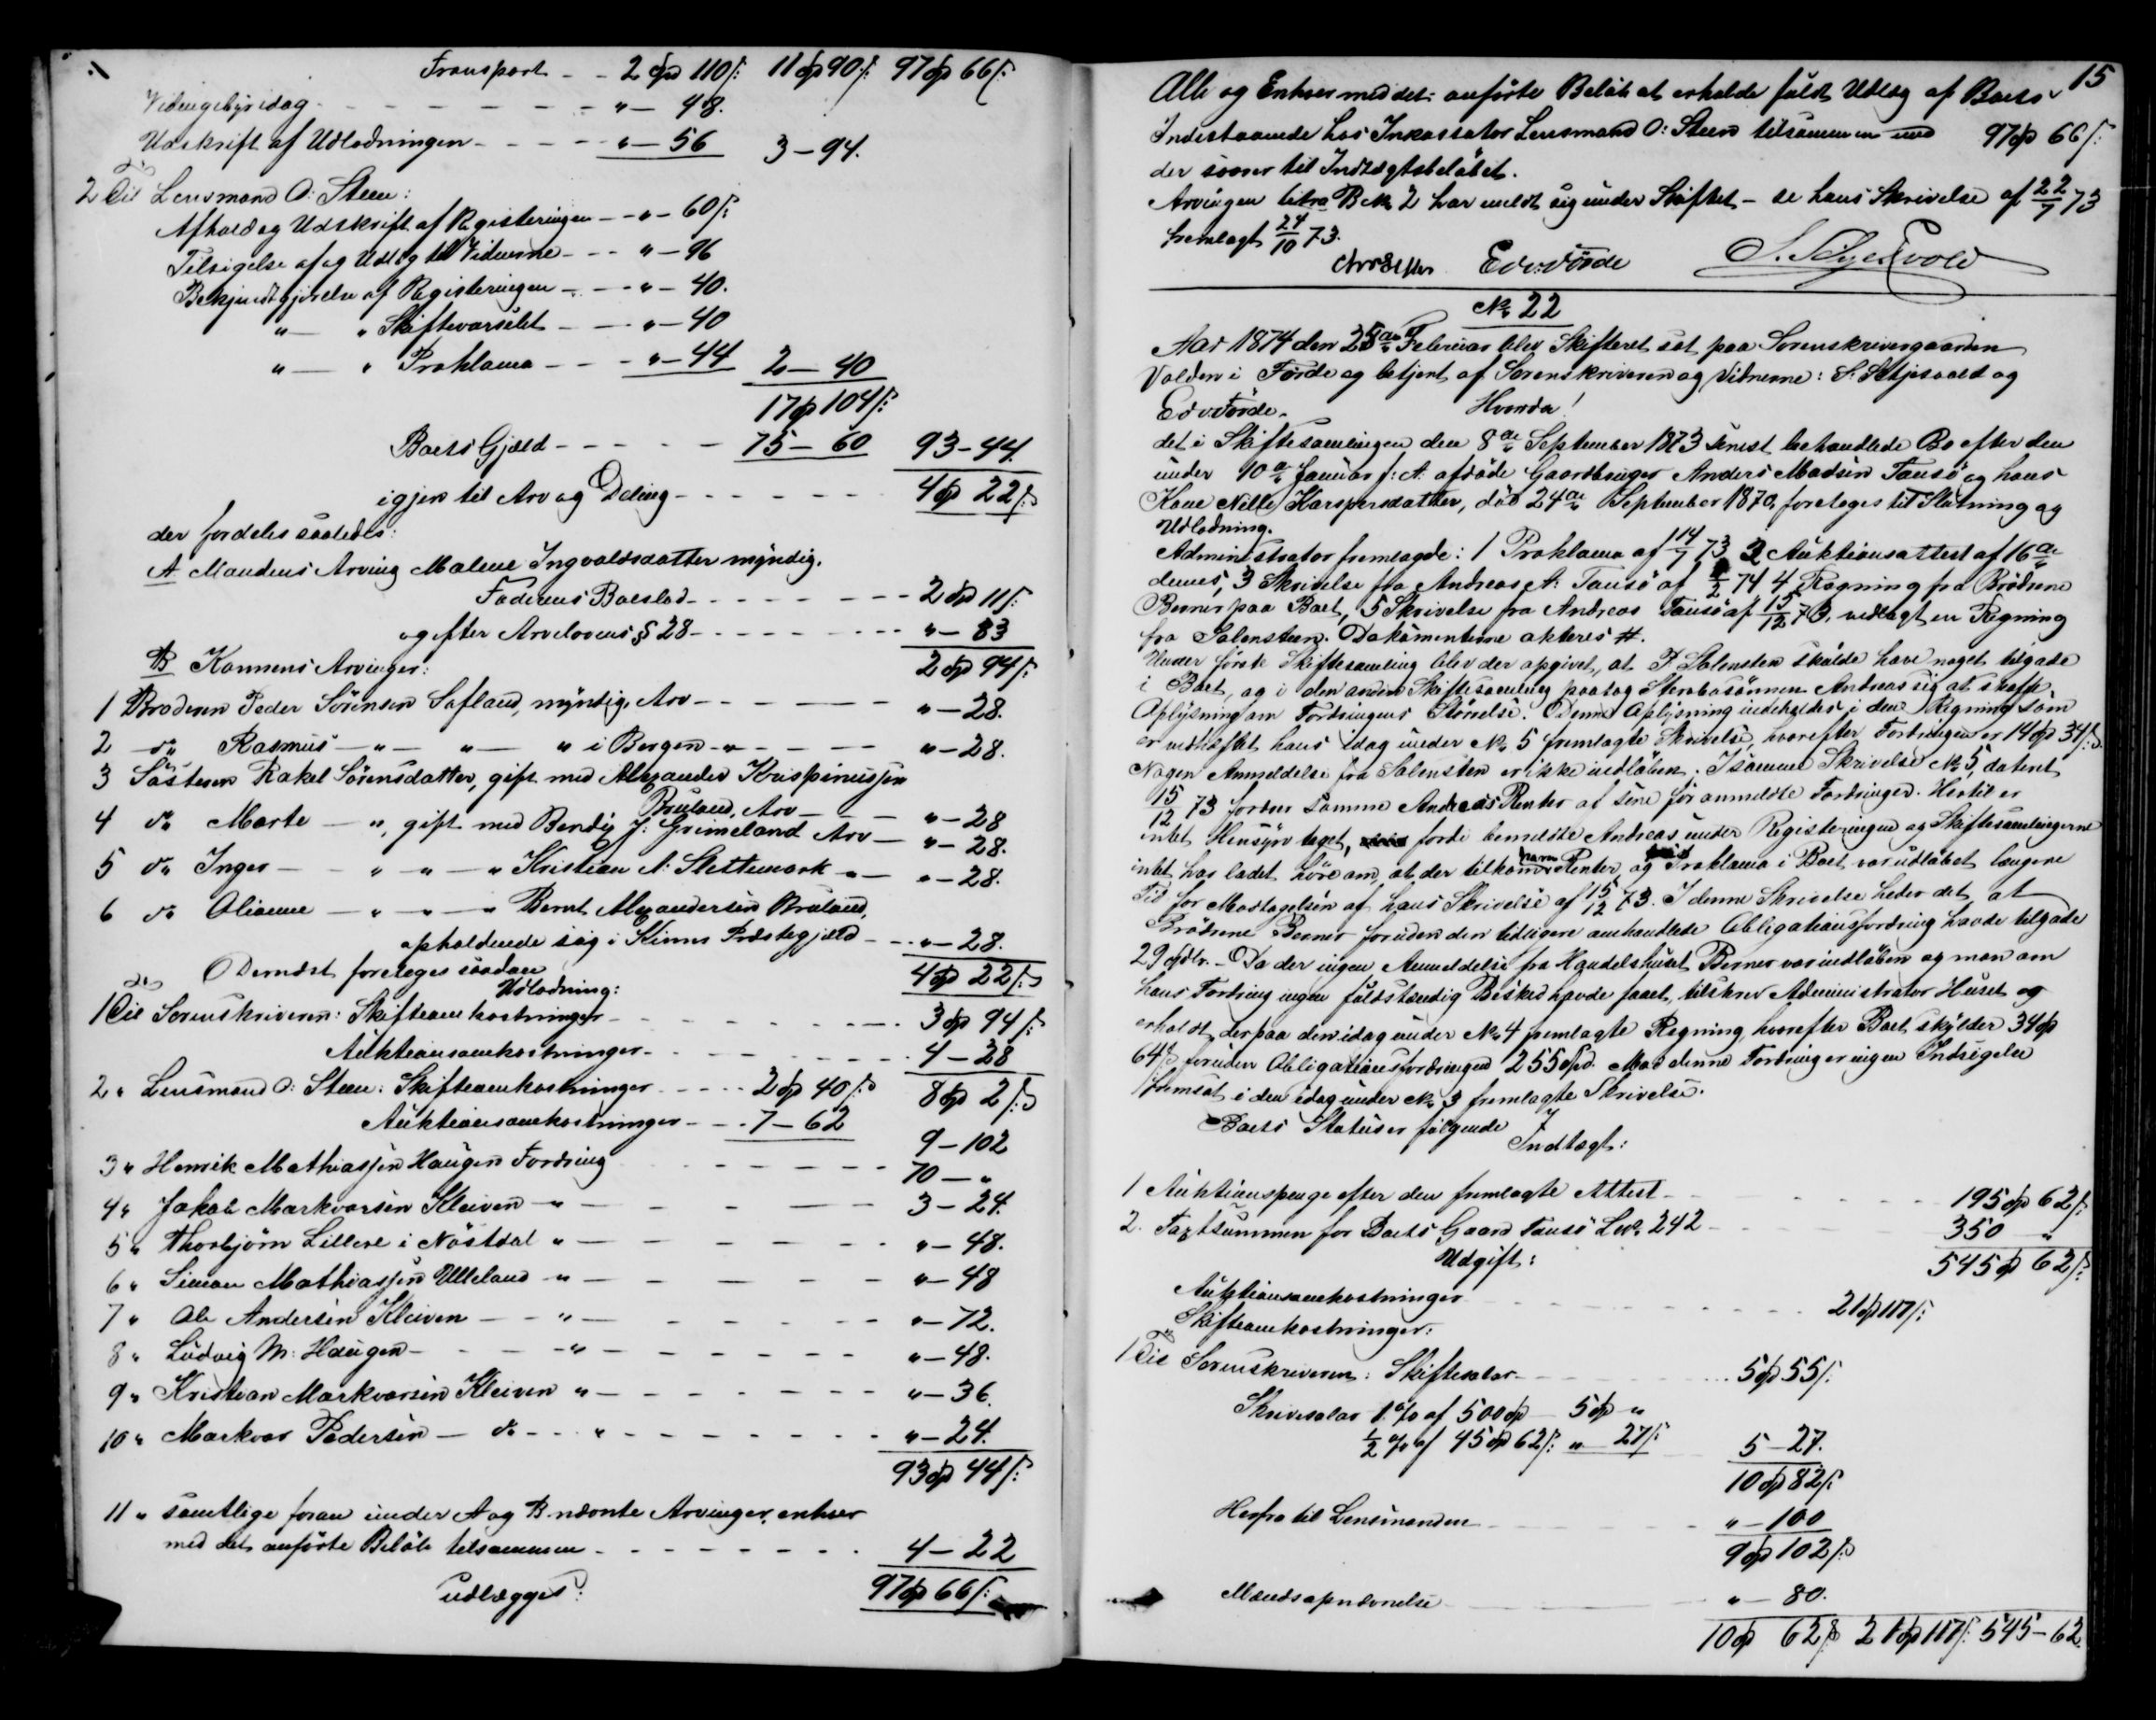 Transport - - 2 Spd 110 ß: 11 Spd 90 ß: 97 Spd 66 ß:
Vidnegebyr idag - - - - - - " - 48.
Udskrift af Udlodningen - - - - " - 56 3 - 94.
2 Til Lensmand O: Steen:
Afhold og Udskrift af Registeringen - - " - 60 ß:
Tilsigelse af og Udlæg til Vidnerne - - - " - 96
Bekjendtgjörelse af Registeringen - - - " - 40.
" - " Skiftevarselet - - - " - 40
" - " Proklama - - - " - 44 2 - 40
17 Spd 104 ß:
Boets Gjæld - - - - - 75 - 60 93 - 44.
igjen til Arv og Deling - - - - - - 4 Spd 22 ß
der fordeles saaledes:
A Mandens Arving Malene Ingvaldsdatter myndig.
Faderens Boeslod - - - - - - - 2 Spd 11 ß:
og efter Arvelovens § 28 - - - - - - - " - 83
2 Spd 94 ß:
B Konnens Arvinger:
1 Broderen Peder Sörensen Sofland, myndig, Arv - - - - - - " - 28.
2 do Rasmus - " - " - " i Bergen - " - - - " - 28.
3 Söstren Rakel Sörensdatter, gift med Alexander Krispinussen
Bruland, Arv - - - " - 28
4 do Marte - ", gift med Bendix J: Grimeland Arv - " - 28.
5 do Inger - - " - " - " Kristian A: Slettemark " - " - 28.
6 do Olianne - " - " - " Bernt Alexandersen Bruland,
opholdende sig i Kinns Præstegjæld - - " - 28.
4 Spd 22 ß
Dernæst foretoges saadan
Udlodning:
1 Til Sorenskriveren: Skifteomkostninger - - - - - - 3 Spd 94 ß
Auktionsomkostninger - - - - - - - 4 - 28
8 Spd 2 ß
2 " Lensmand O: Steen: Skifteomkostninger - - - - 2 Spd 40 ß
Auktionsomkostninger - - - 7 - 62
9 - 102
3 " Henrik Mathiassen Haugen Fordring - - - - - 70 - "
4 " Jakob Markvorsen Kleiven - " - - - - - - 3 - 24.
5 " Thorbjörn Lillere i Nöstdal " - - - - - - " - 48.
6 " Simon Mathiassen Ulleland " - - - - - - " - 48
7 " Ole Andersen Kleiven - - " - - - - - - " - 72.
8 " Ludvig M: Haugen - - - - " - - - - - - " - 48.
9 " Kristian Markvorsen Kleiven " - - - - - - " - 36.
10 " Markvor Pedersen - do - - " - - - - - - " - 24.
93 Spd 44 ß:
11 " samtlige foran under A og B nævnte Arvinger, enhver
med det anförte Belöb tilsammen - - - - - - - 4 - 22
udlægges: 97 Spd 66 ß:
15
Alle og Enhver med det anförte Belöb at erholde fuldt Udlæg af Boets
Indestaaende hos Inkassator Lensmand O: Steen tilsammen med 97 Spd 66 ß:
der svarer til Indtægtsbelöbet.
Arvingen litra B No 2 har meldt sig under Skiftet - se hans Skrivelse af 22/7 73
fremlagt 24/10 73.
Edv. Förde S. Seljesvold
No 22
Aar 1874 den 25de Februar blev Skifteret sat paa Sorenskrivergaarden
Volden i Förde og betjent af Sorenskriveren og Vidnerne: S. Seljesvold og
Edv. Förde.
Hvorda!
det i Skiftesamlingen den 8de September 1873 senest behandlede Bo efter den
under 10de Januar f: A. afdöde Gaardbruger Anders Madsen Tansö og hans
Kone Nille Kaspersdatter, död 24de September 1870, foretoges til Slutning og
Udlodning.
Administrator fremlagde: 1 Proklama af 14/7 73 2 Auktionsattest af 16de
dennes, 3 Skrivelse fra Andreas A: Tansö af /2 74 4 Regning fra Brödrene
Berner paa Boet, 5 Skrivelse fra Andreas Tansö af 15/12 73, vedlagt en Regning
fra Salensten. Dokumenterne akteres #.
Under förste Skiftesamling blev der opgivet, at P. Salensten skulde have noget tilgode
i Boet, og i den anden Skiftesamling paatog Stervbosönnen Andreas sig at skaffe
Oplysning om Fordringens Störrelse. Denne Oplysning indeholdes i den Regning som
er vedheftet hans idag under No 5 fremlagte Skrivelse, hvorefter Fordringen er 14 Spd 34 ß.
Nogen Anmeldelse fra Salensten er ikke indlöben. I samme Skrivelse No 5, dateret
15/12 73 fordrer samme Andreas Renter af sine för anmeldte Fordringer. Hertil er
intet Hensyn taget, fordi bemeldte Andreas under Registeringen og Skiftesamlingerne
intet har ladet höre om, at der tilkom ham Renter, og Proklama i Boet var udlöbet længere
Tid för Modtagelsen af hans Skrivelse af 15/12 73. I denne Skrivelse heder det, at
Brödrene Berner foruden den tidligere omhandlede Obligationsfordring havde tilgode
29 Spdlr. - Da der ingen Anmeldelse fra Handelshuset Berner var indlöben og man om
hans Fordring ingen fuldstændig Besked havde faaet, tilskrev Administrator Huset og
erholdt derpaa den idag under No 4 fremlagte Regning, hvorefter Boet skylder 34 Spd
64 ß foruden Obligationsfordringen 255 Spd. Mod denne Fordring er ingen Indsigelse
fremsat i den idag under No 3 fremlagte Skrivelse.
Boets Status er fölgende
Indtægt:
1 Auktionspenge efter den fremlagte Attest - - - - - 195 Spd 62 ß:
2. Taxtsummen for Boets Gaard Tansö Lno. 242 - - - 350 "
545 Spd 62 ß:
Udgift:
Auktionsomkostninger - - - - - - - 21 Spd 117 ß:
Skifteomkostninger:
1 Til Sorenskriveren: Skiftesalær - - - - - 5 Spd 55 ß:
Skrivesalær 1% af 500 Spd - 5 Spd "
1/2 % af 45 Spd 62 ß: " - 27 ß: 5 - 27.
10 Spd 82 ß
Herfra til Lensmanden - - - - " - 100
9 Spd 102 ß
Mændsopnævnelse - - - - " - 80.
10 Spd 62 ß 21 Spd 117 ß: 545 - 62.